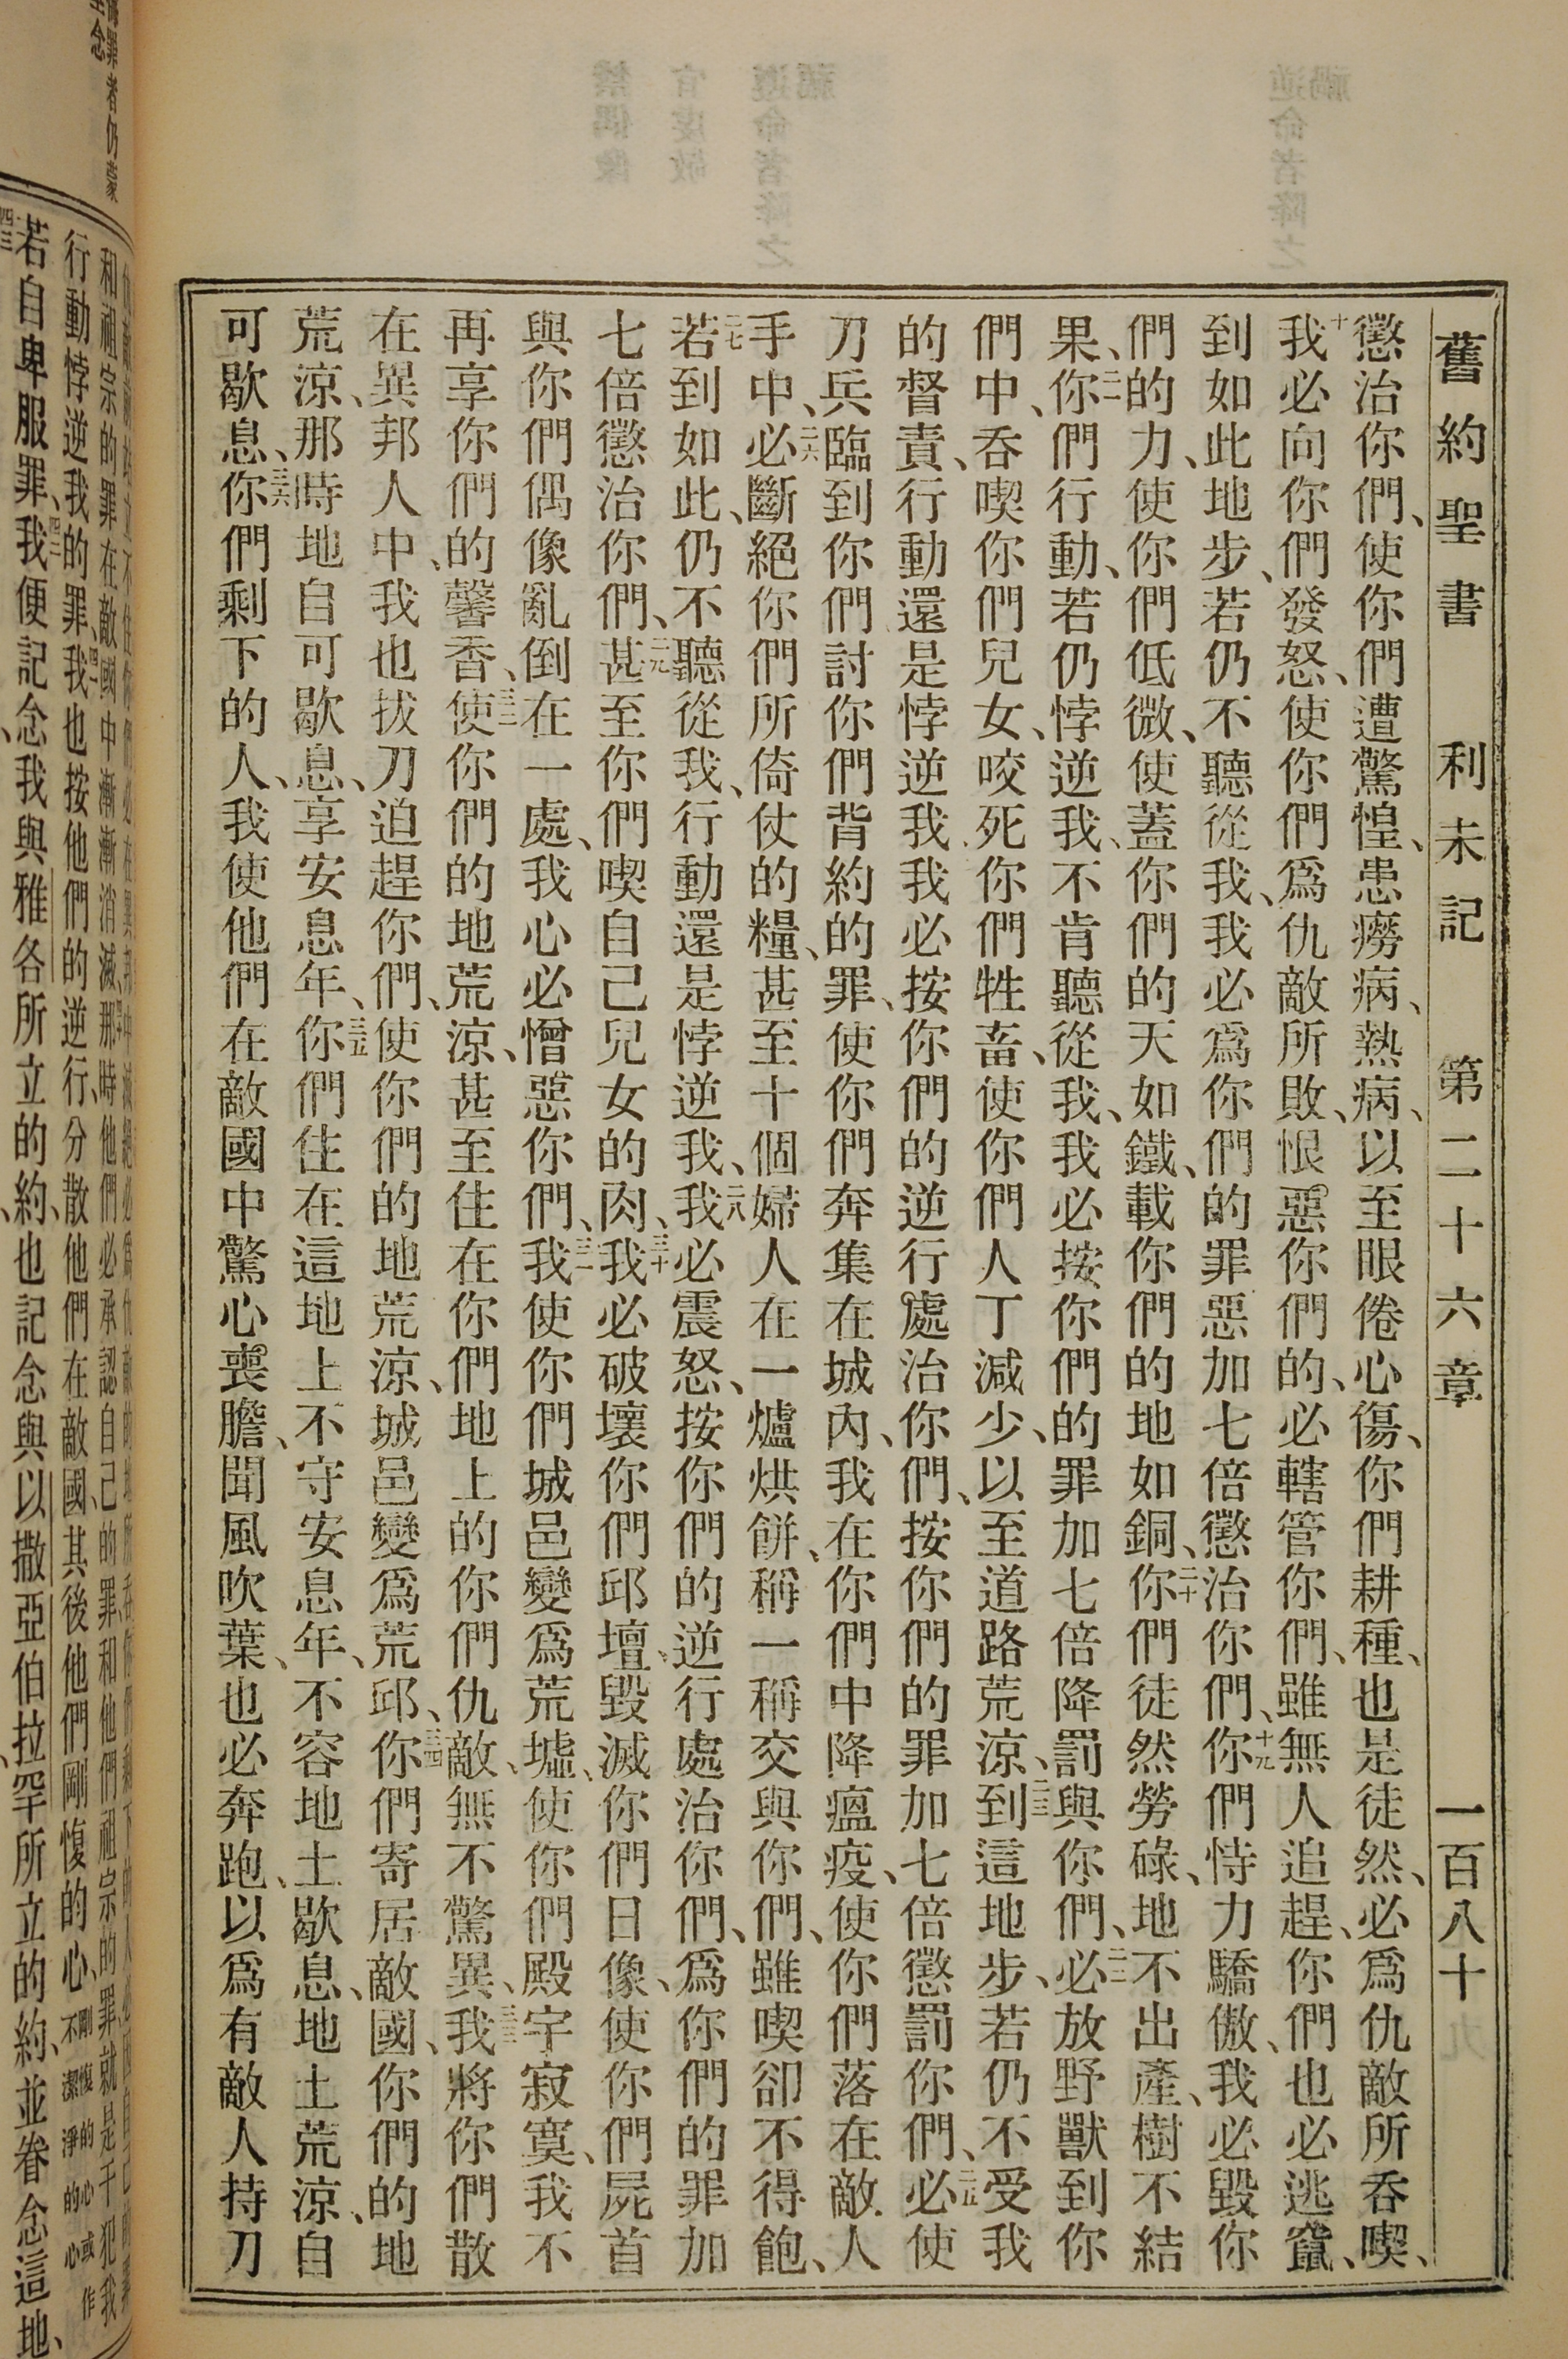 舊約聖書 利未記 第二十六章 一百八十
懲治你們、使你們遭驚惶、患癆病、熱病、以至眼倦心傷、你們耕種、也是徒然、必爲仇敵所吞喫、
我必向你們發怒、使你們爲仇敵所敗、恨惡你們的、必轄管你們、雖無人追趕、你們也必逃竄、
到如此地步、若仍不聽從我、我必爲你們的罪惡加七倍懲治你們、十九你們恃力驕傲、我必毀你
們的力、使你們低微、使蓋你們的天如鐵、載你們的地如銅、二十你們徒然勞碌、地不出產、樹不結
果、二一你們行動、若仍悖逆我、不肯聽從我、我必按你們的罪加七倍降罰與你們、二二必放野獸到你
們中、吞喫你們兒女、咬死你們牲畜、使你們人丁減少、以至道路荒涼、二三到這地步、若仍不受我
的督責、行動還是悖逆我、我必按你們的逆行處治你們、按你們的罪加七倍懲罰你們、二五必使
刀兵臨到你們討你們背約的罪、使你們奔集在城內、我在你們中降瘟疫、使你們落在敵人
手中、二六必斷絕你們所倚仗的糧、甚至十個婦人在一爐烘餅、稱一稱交與你們、雖喫卻不得飽、
二七若到如此、仍不聽從我、行動還是悖逆我、二八我必震怒、按你們的逆行處治你們、爲你們的罪加
七倍懲治你們、二九甚至你們喫自己兒女的肉、三十我必破壞你們邱壇、毀滅你們日像、使你們屍首
與你們偶像亂倒在一處、我心必憎惡你們、三一我使你們城邑變爲荒墟、使你們殿宇寂寞、我不
再享你們的馨香、三二使你們的地荒涼、甚至住在你們地上的你們仇敵、無不驚異、三三我將你們散
在異邦人中、我也拔刀追趕你們、使你們的地荒涼、城邑變爲荒邱、三四你們寄居敵國、你們的地
荒涼、那時地自可歇息、享安息年、三五你們住在這地上不守安息年、不容地土歇息、地土荒涼、自
可歇息、三六你們剩下的人、我使他們在敵國中驚心喪膽、聞風吹葉、也必奔跑、以爲有敵人持刀
行動悖逆我的罪、四一我也按他們的逆行、分散他們在敵國、其後他們剛愎的心、
若自卑服罪、四二我便記念我與雅各所立的約、也記念與以撒亞伯拉罕所立的約、並眷念這地、